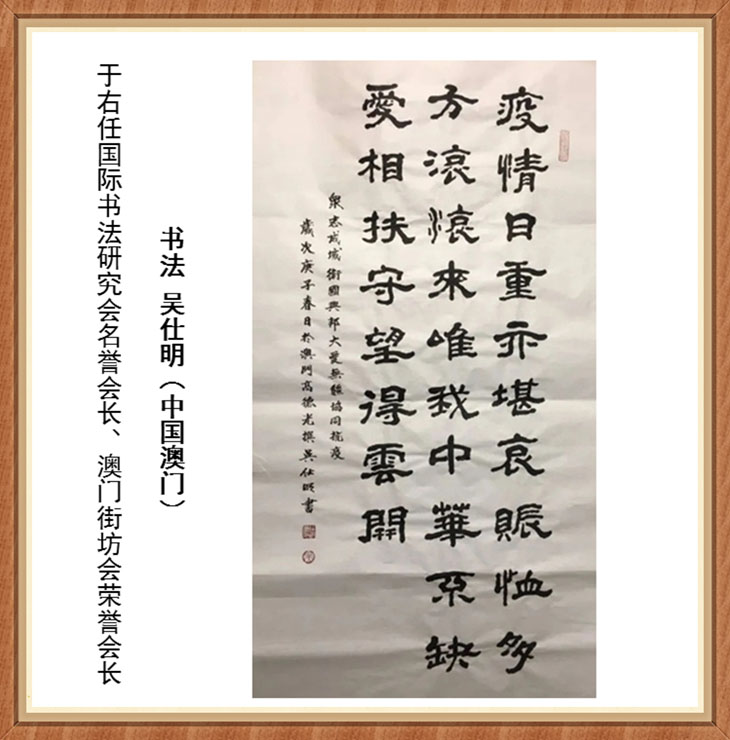 疫情日重亦堪哀賑恤多
方滾滾來唯我中華不缺
愛相扶守望得雲開
眾志成城衛國興邦大愛無疆協同抗疫
歲次庚子春日於澳門高德光撰吳仕明書
书法 吴仕明（中国澳门）
于右任国际书法研究会名誉会长、澳门街坊会荣誉会长